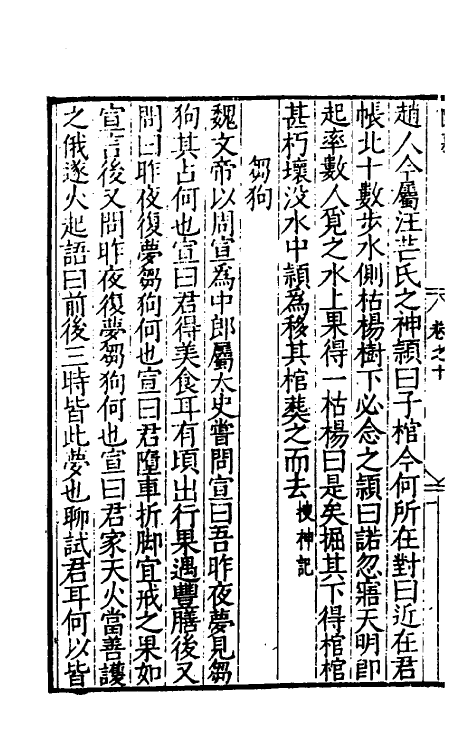 趙人今屬汪芒氏之神頴曰子棺今何所在對曰近在君
帳北十數步水側枯楊樹下必念之頴曰諾忽寤天明卽
起率數人覓之水上果得一枯楊曰是矣掘其下得棺棺
甚朽壞沒水中頴為移其棺葬之而去搜神記
芻狗
魏文帝以周宣為中郎屬太史嘗問宣曰吾昨夜夢見芻
狗其占何也宣曰君得美食耳有頃出行果遇豐膳後又
問曰昨夜復夢芻狗何也宣曰君墮車折脚宜戒之果如
宣言後又問昨夜復夢芻狗何也宣曰君家天火當善護
之俄遂火起語曰前後三時皆此夢也聊試君耳何以皆
卷之十